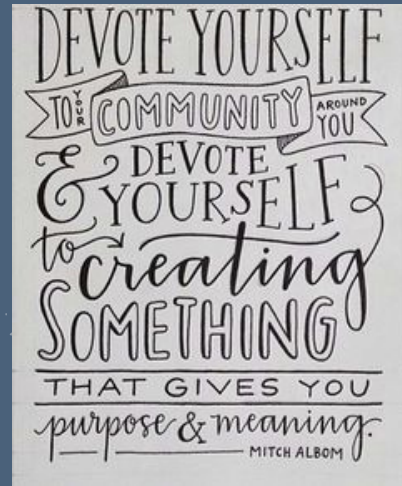 DEVOTE YOURSELF
TO YOUR COMMUNITY AROUND YOU
& DEVOTE
YOURSELF
to creating
SOMETHING
THAT GIVES YOU
purpose & meaning.
MITCH ALBOM